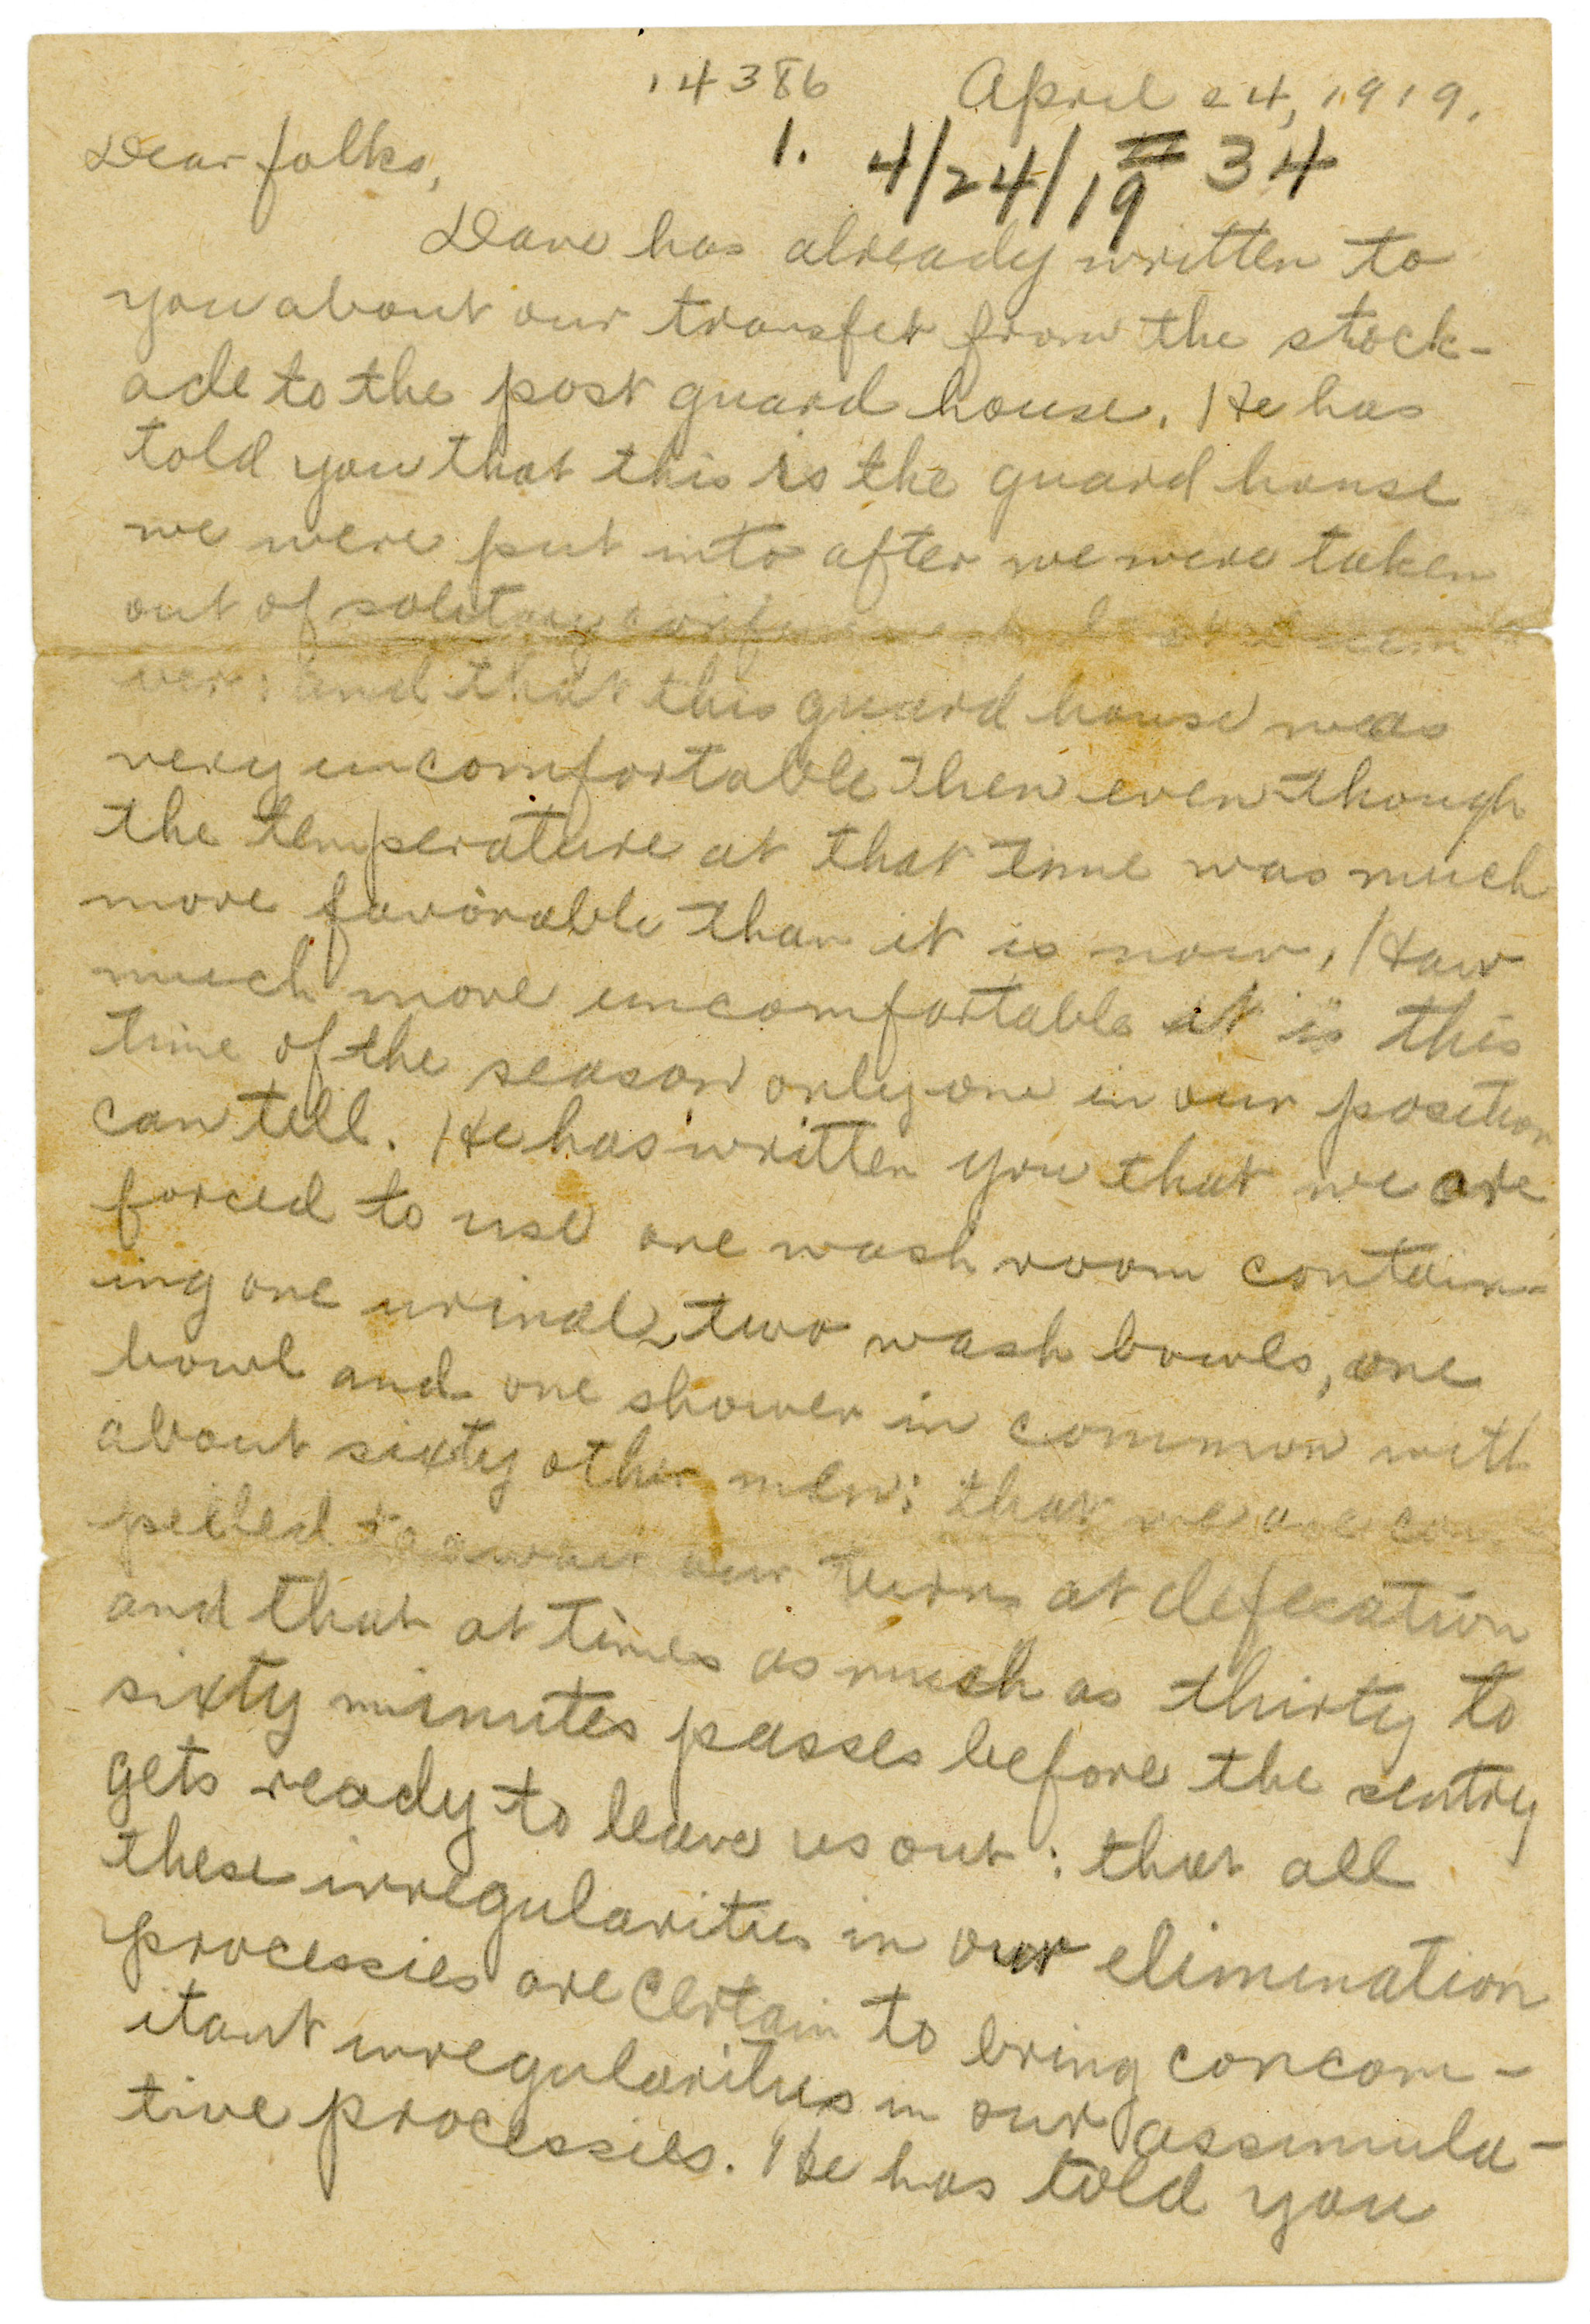 14386 April 24, 1919.
1. 4/24/19 #34
Dear folks,
Dave has already written to
you about our transfer from the stock-
ade to the post guard house. He has
told you that this is the guard house
we were put into after we were taken
out of solitary confinement
ver: and that this guard house was
very uncomfortable then even though
the temperature at that time was much
more favorable than it is now. How
much more uncomfortable it is this
time of the season only one in our position
can tell. He has written you that we are
forced to use one wash room contain-
ing one urinal, two wash bowls, one
bowl and one shower in common with
about sixty other men: that we are com-
pelled to await our turns at defecation
and that at times as much as thirty to
sixty minutes passes before the sentry
gets ready to leave us out: that all
these irregularities in our elimination
processies are certain to bring concom-
itant irregularities in our assimula-
tive processies. He has told you